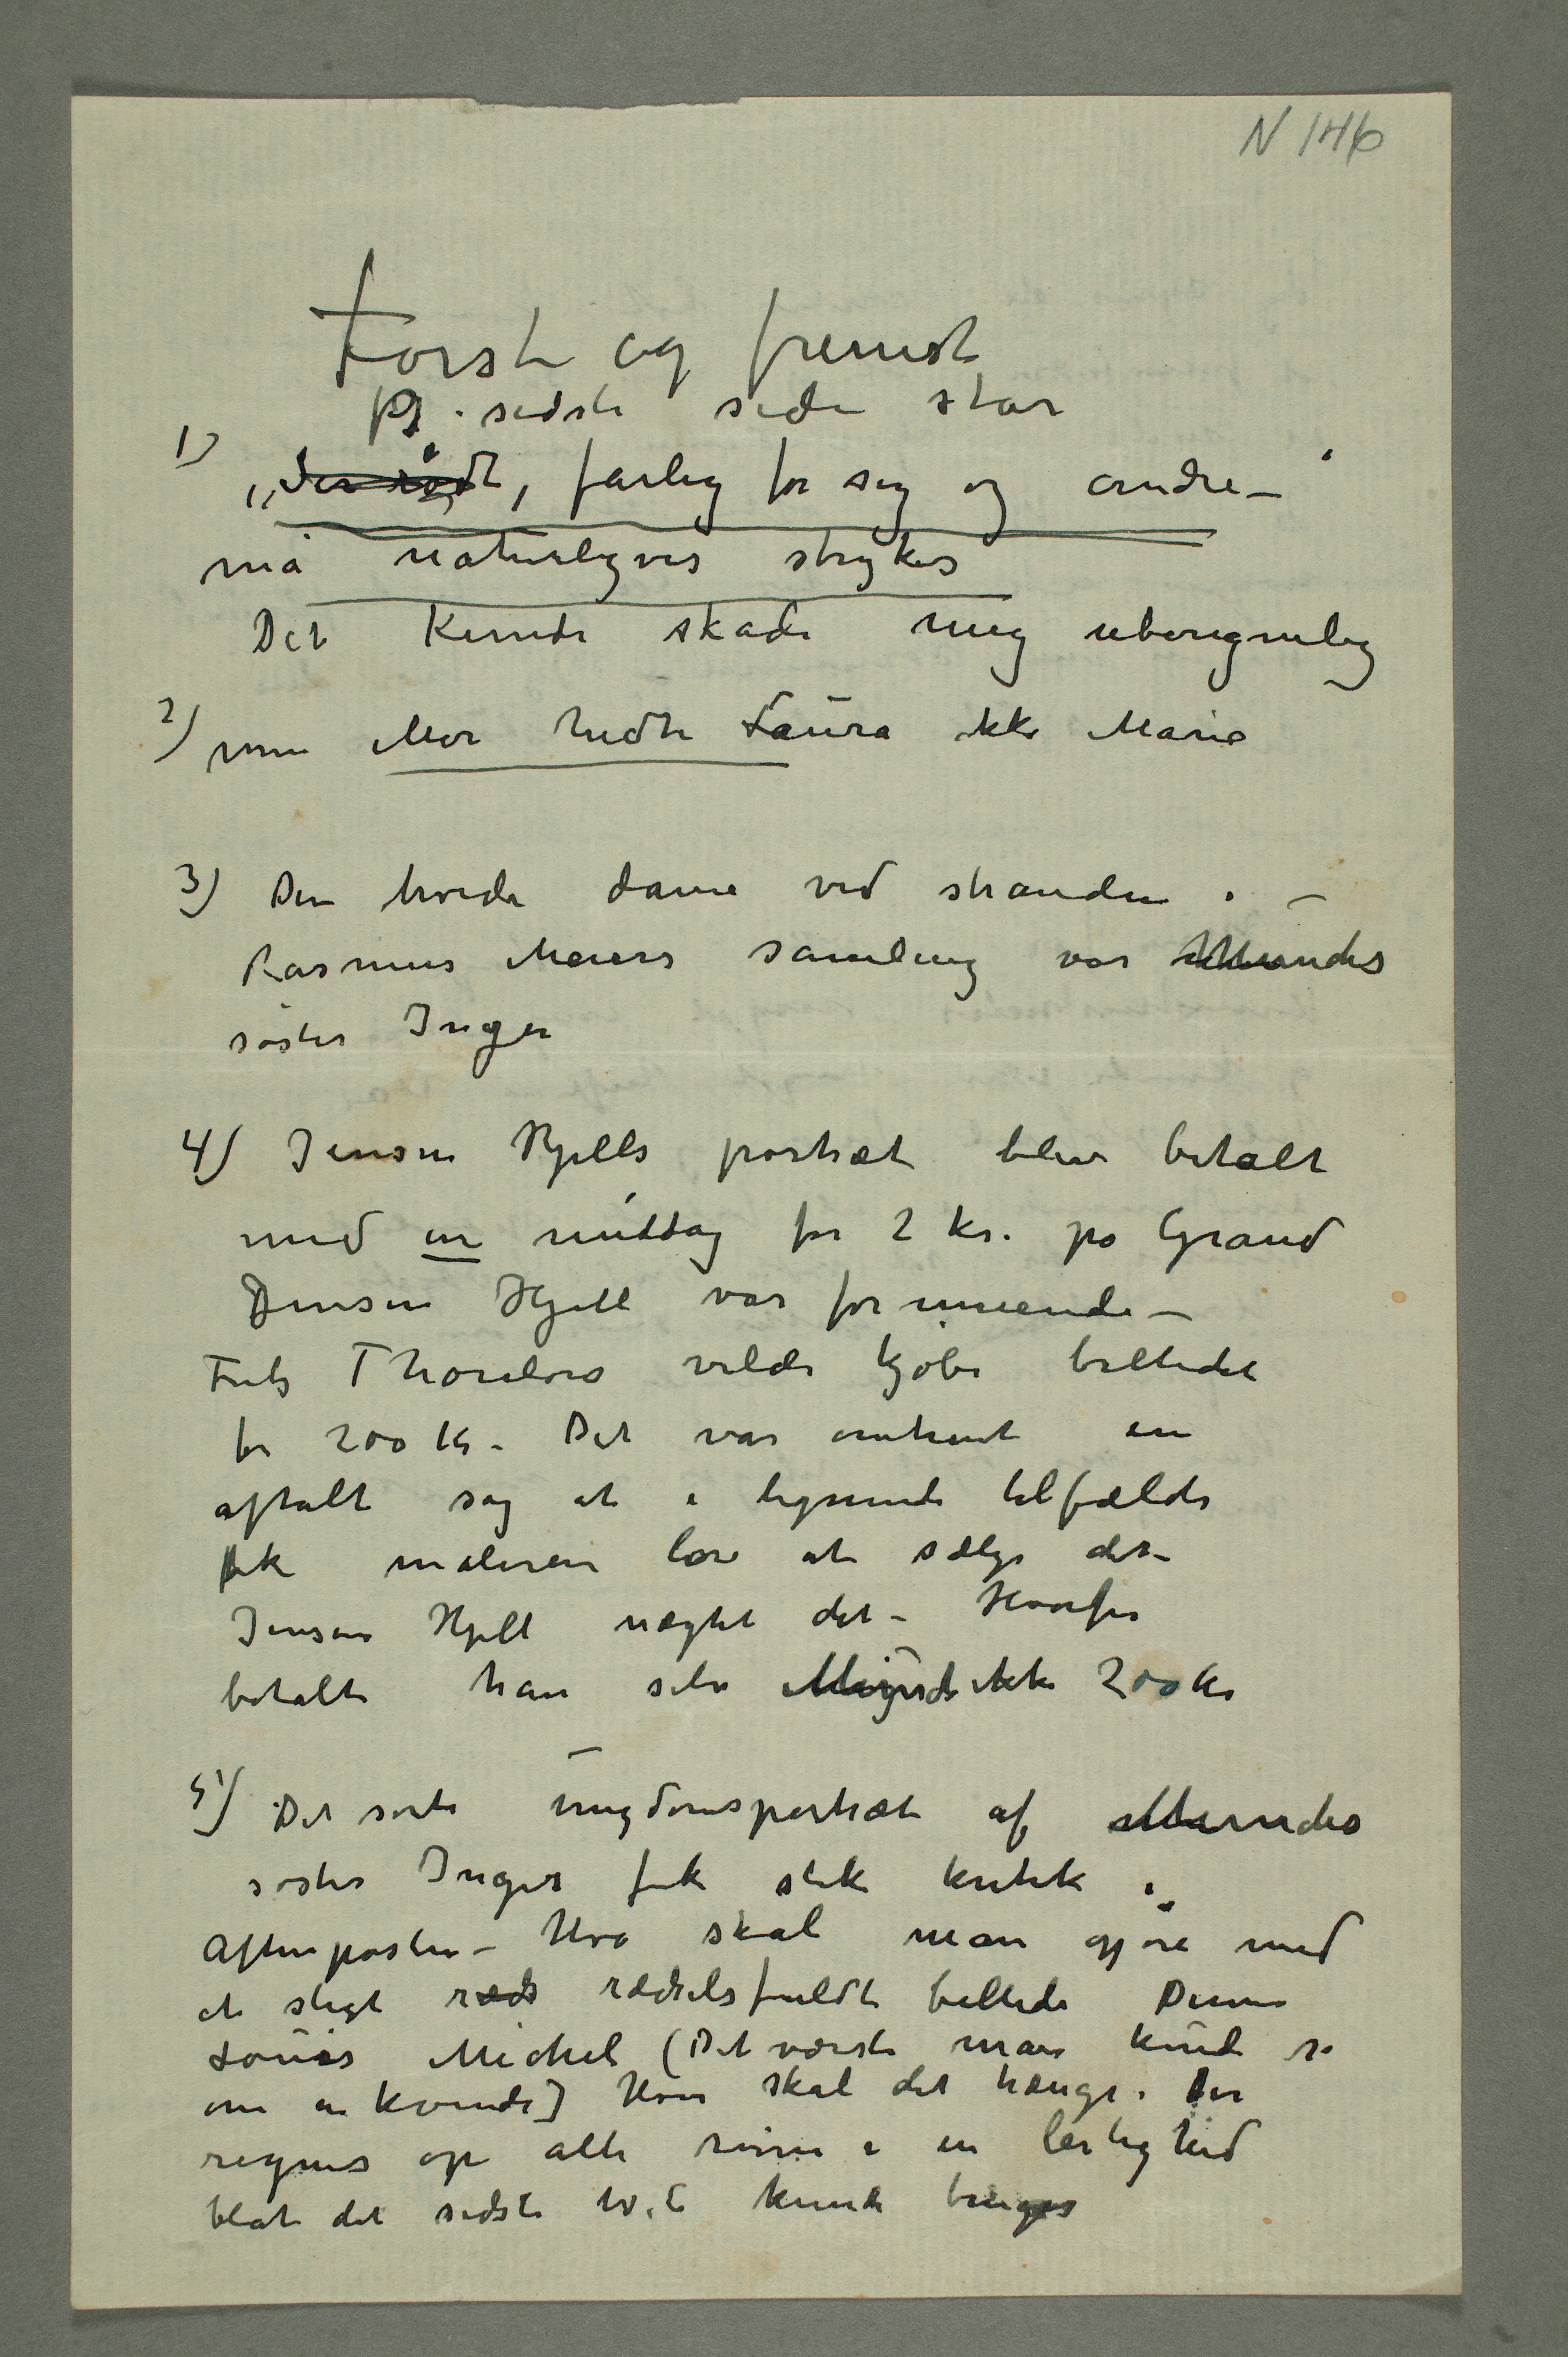 N 146
Først og fremst
på sidste side står
1) „Ser rødt, farlig for sig og andre –“
må naturligvis strykes
Det kunde skade mig uberegnelig
2) min Mor hedte Laura ikke Maria
3) Den hvide dame ved stranden i –
Rasmus Meiers samling var Munchs
søster Inger
4) Jensen Hjells portræt blev betalt
med en middag for 2 kr. på Grand
Jensen Hjell var formuende –
Fritz Thoulow vilde kjøbe billedet
for 200 kr – Det var omtrent en
aftalt sag at i lignende tilfælde
fik maleren lov at sælge det –
Jensen Hjell nægtet det – Hvorfor
betalte han selv Munch ikke 200 kr
5) Det sorte ungdomsportræt af Munchs
søster Inger fik slik kritik i
Aftenposten – Hva skal man gjøre med
et sligt ræds rædselsfuldt billede Denne
Louis Michel (Det værste man kunde si
om en kvinde) Hvor skal det hænge. Der
regnes op alle rum i en leilighed
blot det sidste W.C kunde bruges